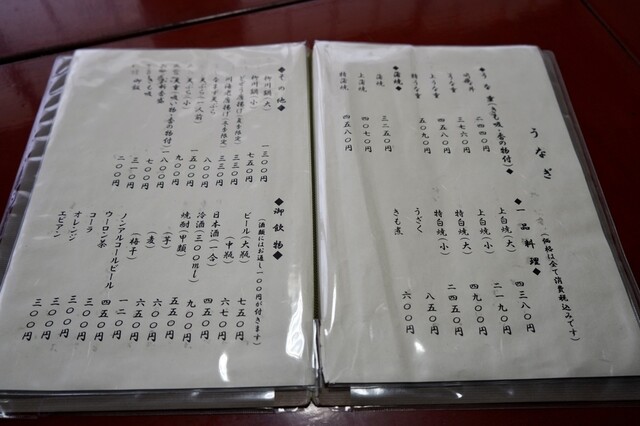 うなぎ
(価格は全て消費税込みです)
◆うな重(きも吸・香の物付)◆
うな丼 二四四〇円
うな重 三七六〇円
上うな重 四五八〇円
特うな重 五〇九〇円
◆蒲焼◆
蒲焼 三二五〇円
上蒲焼 四〇七〇円
特蒲焼 四五八〇円
◆一品料理◆
上白焼(大) 四三八〇円
上白焼(小) 二一九〇円
特白焼(大) 四九〇〇円
特白焼(小) 二四五〇円
うざく 八五〇円
きも煮 六〇〇円
◆その他◆
柳川鍋(大) 一三〇〇円
柳川鍋(小) 七五〇円
どじょう唐揚げ(夏季限定) 三三〇円
川海老唐揚げ(冬季限定) 三三〇円
なまず天ぷら 八〇〇円
天ぷら(一人前) 一五〇〇円
天ぷら(小) 九〇〇円
天重(吸い物・香の物付) 一八〇〇円
お新香盛 七〇〇円
きも吸 三一〇円
御飯 二〇〇円
◆御飲物◆
(酒類にはお通し一〇〇円が付きます)
ビール(大瓶) 七五〇円
(中瓶) 六七〇円
日本酒(一合) 四五〇円
冷酒(三〇〇ml) 九〇〇円
焼酎(甲類) 五五〇円
(芋) 六五〇円
(麦) 六〇〇円
(梅干) 一二〇円
ノンアルコールビール 四五〇円
ウーロン茶 三〇〇円
コーラ 三〇〇円
オレンジ 三〇〇円
エビアン 三〇〇円